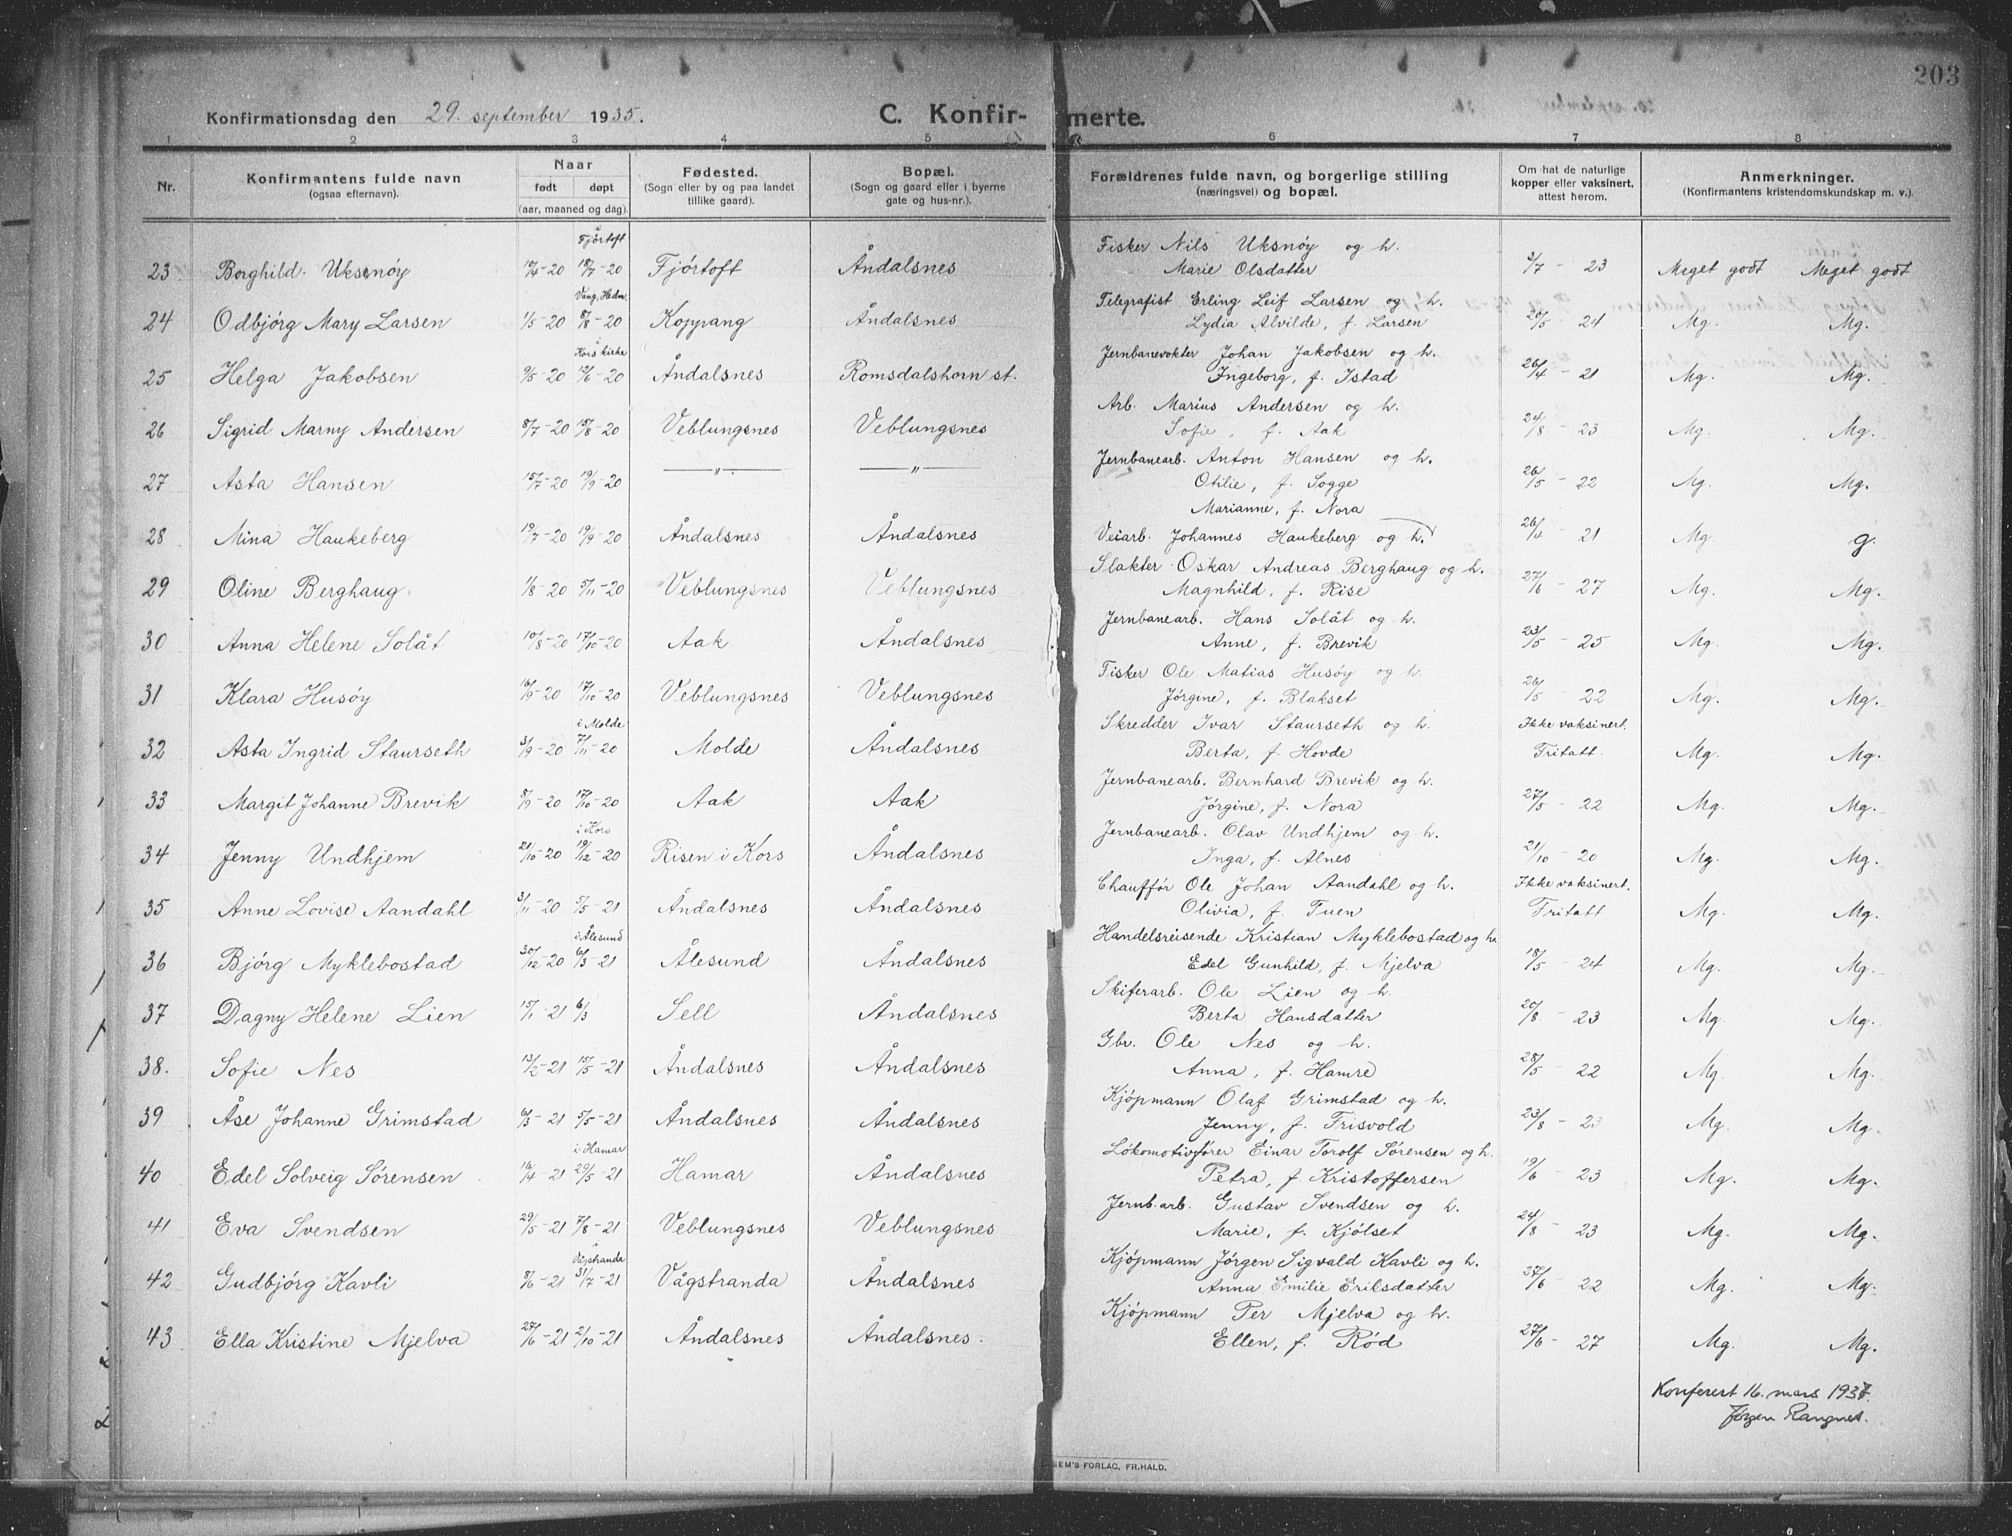 203
Konfirmationsdag den 29. september 1935. C. Konfirmerte.
1 2 3 4 5 6 7 8
Nr. Konfirmantens fulde navn (ogsaa efternavn). Naar født døpt (aar, maaned og dag). Fødested. (Sogn eller by og paa landet tillike gaard). Bopæl. (Sogn og gaard eller i byerne gate og hus-nr.). Forældrenes fulde navn, og borgerlige stilling (næringsvei) og bopæl. Om hat de naturlige kopper eller vaksinert, attest herom. Anmerkninger. (Konfirmantens kristendomskundskap m. v.).
Fjørtoft Fisker Nils Uksnøy og h.
23 Borghild Uksnøy -20 18/7-20 Fjörtoft Åndalsnes Marie Olsdatter 3/7 - 23 Meget godt Meget godt
Vang, Hedm. Telegrafist Erling Leif Larsen og h.
24 Odbjörg Mary Larsen 1/5-20 8/8-20 Koppang Åndalsnes Lydia Alvilde, f. Larsen 20/5 - 24 Mg. Mg.
i Kors kirke Jernbanevokter Johan Jakobsen og h.
25 Helga Jakobsen 9/5-20 12/6-20 Åndalsnes Romsdalshorn st. Ingeborg, f. Istad 26/4 - 21 Mg. Mg.
Arb. Marius Andersen og h.
26 Sigrid Marny Andersen 8/7-20 15/8-20 Veblungsnes Veblungsnes Sofie, f. Aak 24/8 - 23 Mg. Mg.
Jernbanearb. Anton Hansen og h.
27 Asta Hansen 15/7-20 19/9-20 — " — — " — Otilie, f. Sogge 26/5 - 22 Mg. Mg.
Marianne, f. Nora
28 Mina Haukeberg 19/7-20 19/9-20 Åndalsnes Åndalsnes Veiarb. Johannes Haukeberg og h. 26/4 - 21 Mg. g.
Slakter Oskar Andreas Berghaug og h.
29 Oline Berghaug 1/8-20 5/11-20 Veblungsnes Veblungsnes Magnhild, f. Rise 27/6 - 27 Mg. Mg.
Jernbanearb. Hans Solåt og h.
30 Anna Helene Solåt 10/8-20 17/10-20 Aak Åndalsnes Anne, f. Brevik 23/5 - 25 Mg. Mg.
Fisker Ole Matias Husøy og h.
31 Klara Husøy 16/9-20 17/10-20 Veblungsnes Veblungsnes Jørgine, f. Blakset 26/5 - 22 Mg. Mg.
i Molde Skredder Ivar Staurseth og h. Ikke vaksinert.
32 Asta Ingrid Staurseth 3/9-20 7/11-20 Molde Åndalsnes Berta, f. Hovde Fritatt. Mg. Mg.
Jernbanearb. Bernhard Brevik og h.
33 Margit Johanne Brevik 8/9-20 17/10-20 Aak Aak Jörgine, f. Nora 27/5 - 22 Mg. Mg.
i Kors Jernbanearb. Olav Undhjem og h.
34 Jenny Undhjem 21/10-20 19/12-20 Risen i Kors Åndalsnes Inga, f. Alnes 21/10 - 20 Mg. Mg.
Chauffør Ole Johan Aandahl og h. Ikke vaksinert.
35 Anne Lovise Aandahl 3/11-20 5/5-21 Åndalsnes Åndalsnes Olivia, f. Tuen Fritatt Mg. Mg.
i Ålesund Handelsreisende Kristian Myklebostad og h.
36 Bjørg Myklebostad 30/12-20 6/3-21 Ålesund Åndalsnes Edel Gunhild, f. Mjelva 18/5 - 24 Mg. Mg.
Skiferarb. Ole Lien og h.
37 Dagny Helene Lien 15/1-21 6/3 Sell Åndalsnes Berta Hansdatter 20/8 - 23 Mg. Mg.
Gbr. Ole Nes og h.
38. Sofie Nes 13/2-21 15/5-21 Åndalsnes Åndalsnes Anna, f. Hamre 28/5 - 22 Mg. Mg.
Kjøpmann Olaf Grimstad og h.
39 Åse Johanne Grimstad 6/3-21 5/5-21 Åndalsnes Åndalsnes Jenny, f. Frisvold 23/8 - 23 Mg. Mg.
i Hamar Lokomotivfører Einar Torolf Sørensen og h.
40 Edel Solveig Sørensen 16/4-21 29/5-21 Hamar Åndalsnes Petra, f. Kristoffersen 19/6 - 23 Mg. Mg.
Jernb.arb. Gustav Svendsen og h.
41 Eva Svendsen 29/5-21 7/8-21 Veblungsnes Veblungsnes Marie, f. Kjölset 24/8 - 23 Mg. Mg.
i Vågstranda Kjøpmann Jørgen Sigvald Kavli og h.
42 Gudbjørg Kavli 8/6-21 31/7-21 Vågstranda Åndalsnes Anna Emilie Eriksdatter 27/6 - 22 Mg. Mg.
Kjøpmann Per Mjelva og h.
43 Ella Kristine Mjelva 27/6-21 2/10-21 Åndalsnes Åndalsnes. Ellen, f. Rød 27/6 - 27 Mg. Mg.
Konferert 16. mars 1937.
Jørgen Rangnes.
SEM'S FORLAG, FR.HALD.